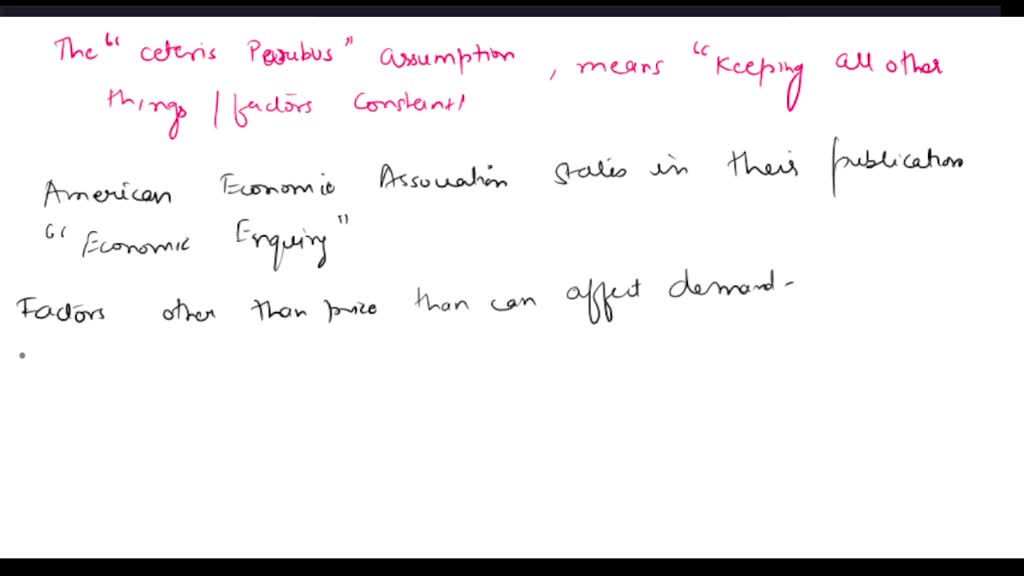 The "ceteris Paribus" assumption, means "Keeping all other
things / factors constant"
American Economic Association states in their publication
"Economic Enquiry"
Factors other than price than can affect demand-